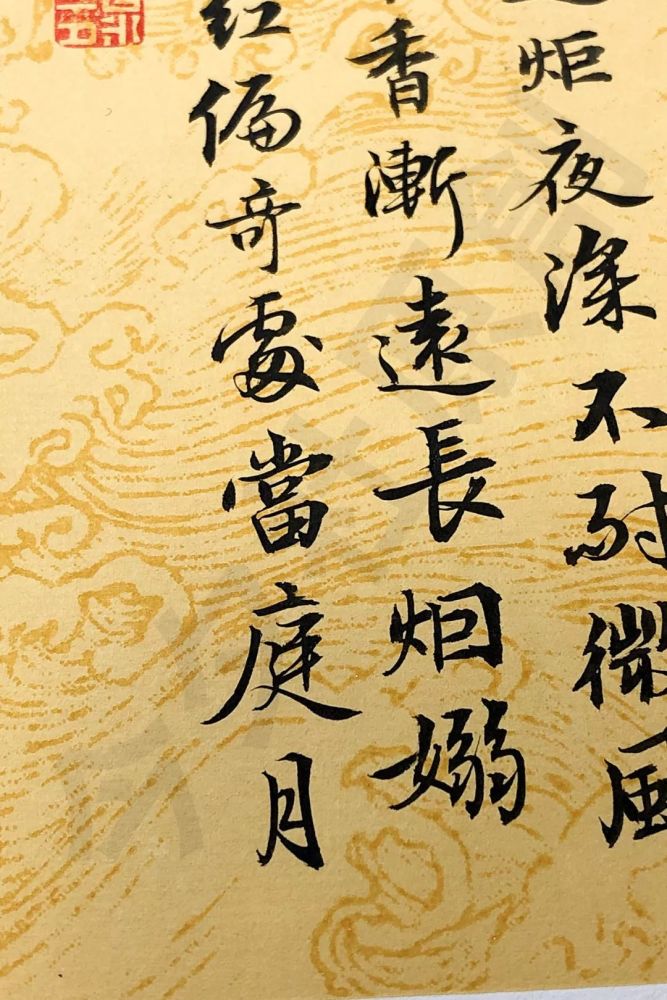 炬夜深不耐微風
香漸遠長烟嫋
紅偏奇處當庭月